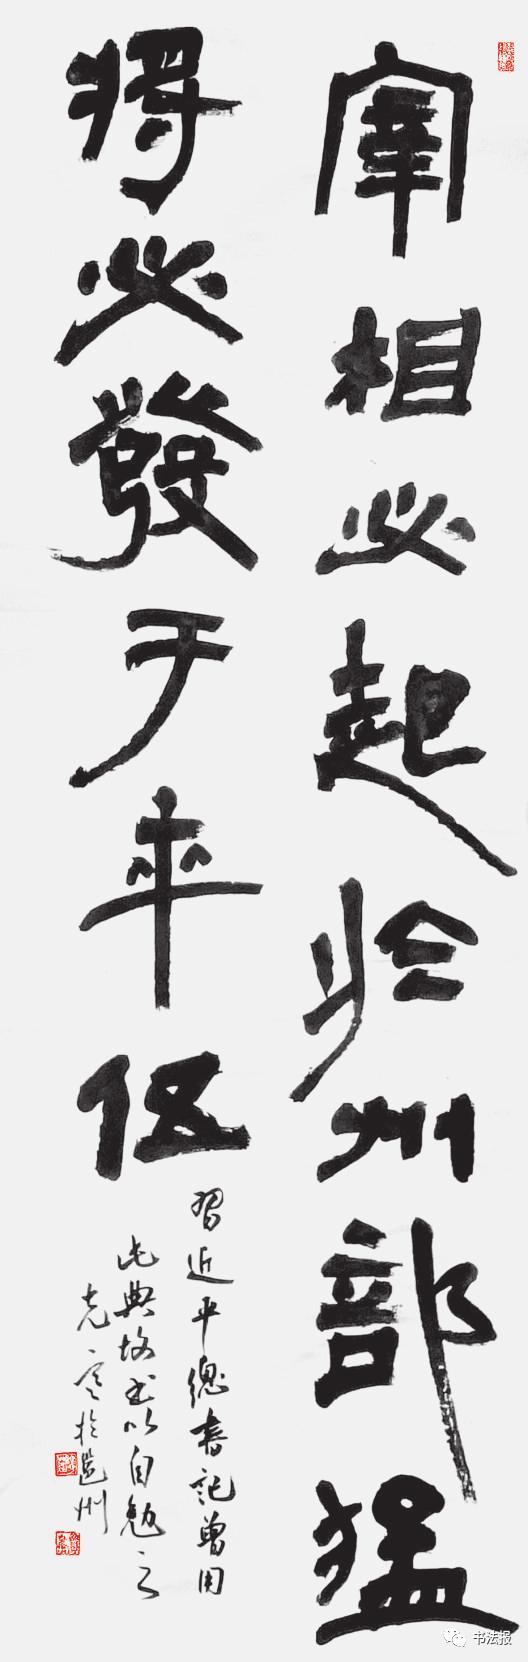 宰相必起於州部猛
將必發于卒伍
習近平總書記曾用
此典故书以自勉之
於邕州
书法报